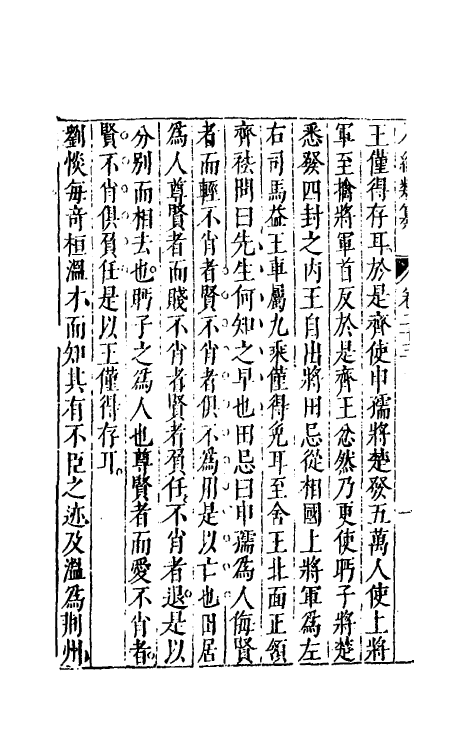 編類 卷二十
王僅得存耳於是齊使申孺將楚發五萬人使上將
軍至擒將軍首反於是齊王忿然乃更使眄子將楚
悉發四封之內王自出將田忌從相國上將軍爲左
右司馬益王車屬九乘僅得免耳至舍王北面正領
齊袪問曰先生何知之早也田忌曰申孺爲人侮賢
者而輕不肖者賢不肖者俱不爲用是以亡也田居
爲人尊賢者而賤不肖者賢者負任不肖者退是以
分別而相去也眄子之爲人也尊賢者而愛不肖者
賢不肖俱負任是以王僅得存耳
劉惔每奇桓溫才而知其有不臣之迹及溫爲荆州